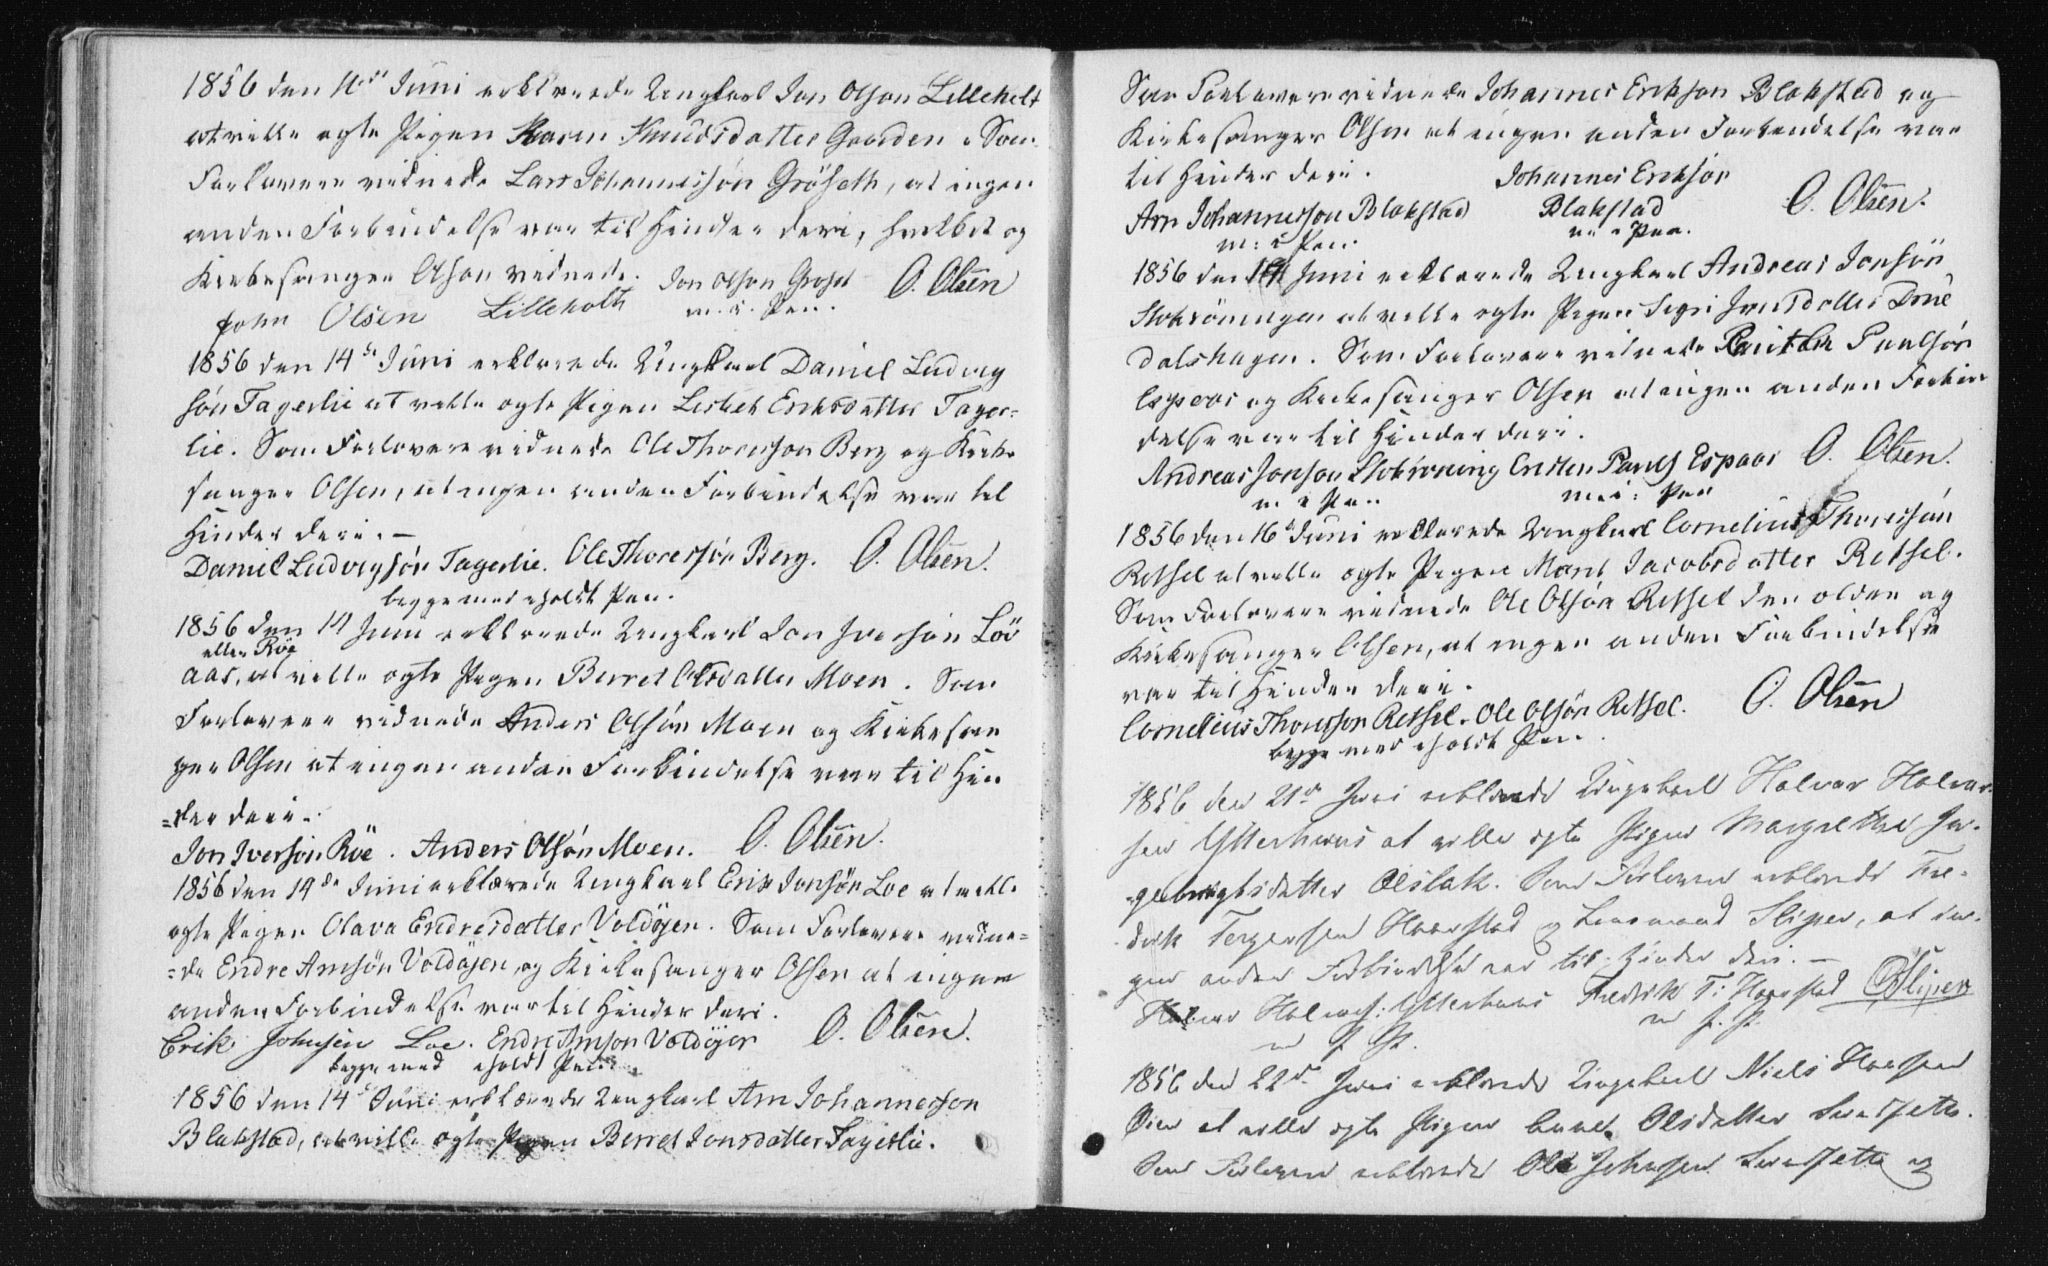 1856 den 11de Juni erklærede Ungkarl Jon Olson Lilleholt
at ville egte Pigen Karen Knudsdatter Gaarden. Som
Forlovere vidnede Lars Johannesøn Gröseth, at ingen
anden Forbindelse var til Hinder deri, hvilket og
Kirkesanger Olsen vidnede. Jon Olson Groset O. Olsen
John Olsen Lilleholt m. i. Pen.
1856 den 14de Juni erklærede Ungkarl Daniel Ludvig
søn Fagerlie at ville egte Pigen Lisbet Eriksdatter Fager=
lie. Som Forlovere vidnede Ole Thoresson Berg og Kirke
sanger Olsen, at ingen anden Forbindelse var til
Hinder deri. —
Daniel Ludvigsøn Fagerlie. Ole Thoressøn Berg. O. Olsen.
begge med eholdt Pen.
1856 den 14 Juni erklærede Ungkarl Jon Iversøn Löv
eller Röe
aas, at ville egte Pigen Berret Olsdatter Moen. Som
Forlovere vidnede Anders Olsøn Moen og Kirkesan
ger Olsen at ingen anden Forbindelse var til Hin
=der deri.
Jon Iverson Röe. Anders Olsøn Moen. O. Olsen.
1856 den 14de Juni erklærede Ungkarl Erik Jonsøn Loe at ville
egte Pigen Olava Endresdatter Voldøyen. Som Forlovere vidne=
=de Endre Arnsøn Voldøyen, og Kirkesanger Olsen at ingen
anden Forbindelse var til Hinder deri.
Erik Johnsen Loe. Endre Arnson Voldöyen O. Olsen.
begge med eholdt Pen.
1856 den 14d Juni erklærede Ungkarl Arn Johanneson
Blakstad, at ville egte Pigen Berret Jonsdatter Fagerlie.
Som Forlovere vidnede Johannes Erikson Blakstad og
Kirkesanger Olsen at ingen anden Forbindelse var
til Hinder deri. Johannes Eriksøn
Arn Johannesson Blakstad Blakstad O. Olsen.
m: i Pen. m i Pen.
1856 den 14 Juni erklærede Ungkarl Andreas Jonsøn
Stokröningen at ville egte Pigen Sigri Jensdatter Drue
dalshagen. Som Forlovere vidnede Paulsøn
Espaas og Kirkesanger Olsen at ingen anden Forbin
delse var til Hinder deri.
Andreas Jonson Stokröning Cristen Pauls Espaas O. Olsen.
m i Pen m: i: Pen
1856 den 16d Juni erklærede Ungkarl Cornelius Thoressøn
Retsel at ville egte Pigen Marit Jacobsdatter Retsel.
Som Forlovere vidnede Ole Olsøn Retsel den older og
Kirkesanger Olsen, at ingen anden Forbindelse
var til Hinder deri.
Cornelius Thoresson Retsel. Ole Olsøn Retsel. O. Olsen
begge med eholdt Pen.
1856 den 21de Juni erklærede Ungekarl Halvor Halvor-
sen Ytterhuus at ville egte Pigen Margrethe In-
gebrigtsdatter Oelslak. Som Forlovere erklærede Fre-
drik Tergersen Haarstad og Lensmand Slipper, at in-
gen anden Forbindelse var til Hinder deri. —
Halvor Halvors: Ytterhuus Fredrik T: Haarstad Slipper
m f. P. m f. P.
1856 den 22de Juni erklærede Ungekarl Niels Hansen
Øien at ville egte Pigen Olsdatter
Som Forlovere erklærede Ole Johnsen og